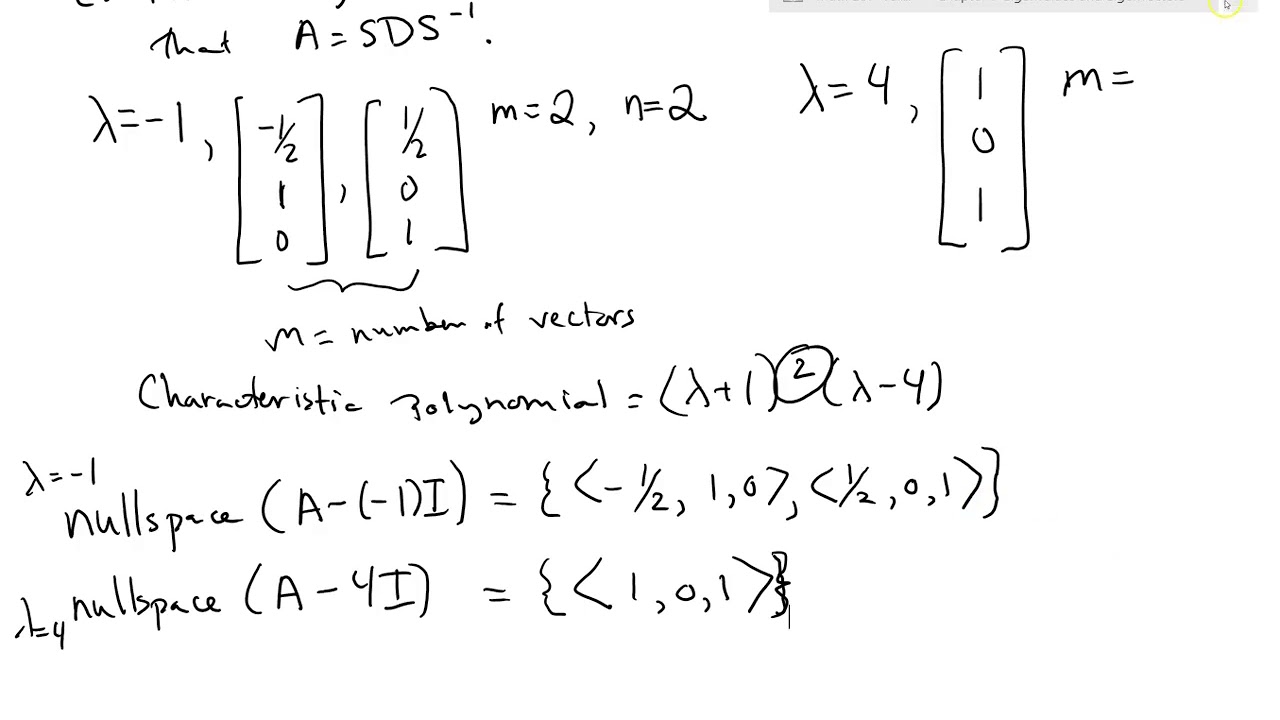 that A = SDS⁻¹.
λ = -1, [-1/2 1 0], [1/2 0 1] m = 2, n = 2
λ = 4, [1 0 1] m =
m = number of vectors
Characteristic polynomial = (λ+1)²(λ-4)
λ = -1
nullspace (A-(-1)I) = {<-1/2, 1, 0>, <1/2, 0, 1>}
λ=4 nullspace (A - 4I) = {<1, 0, 1>}